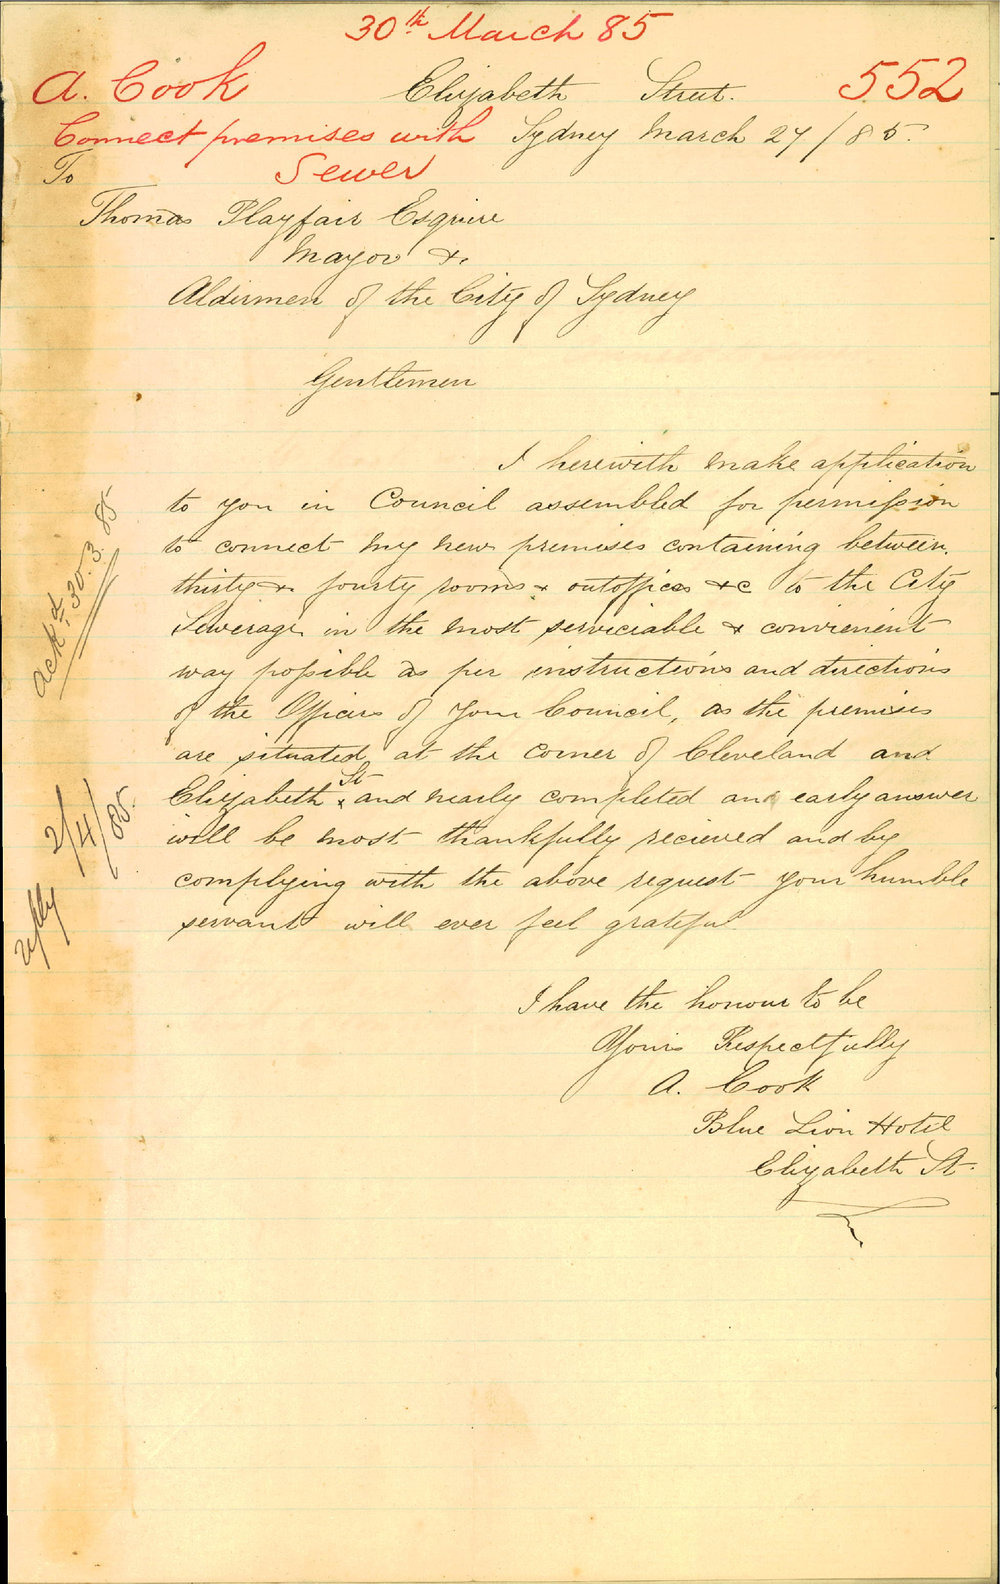 30th March 85
A. Cook
552
Connect premises with
Sewer
Elizabeth Street.
Sydney March 27/85.
To
Thomas Playfair Esquire
Mayor &
Aldermen of the City of Sydney
Gentlemen
I herewith make application
to you in Council assembled for permission
to connect my new premises containing between
thirty & fourty rooms & outoffices &c to the City
Sewerage in the most serviciable & convienient
way possible as per instructions and directions
of the Officers of Your Council, as the premises
are situated at the corner of Cleveland and
Elizabeth St and nearly completed and early answer
will be most thankfully recieved and by
complying with the above request your humble
servant will ever feel grateful
I have the honour to be
Yours Respectfully
A. Cook
Blue Lion Hotel
Elizabeth St.
ackd 30.3.85
2/4/85.